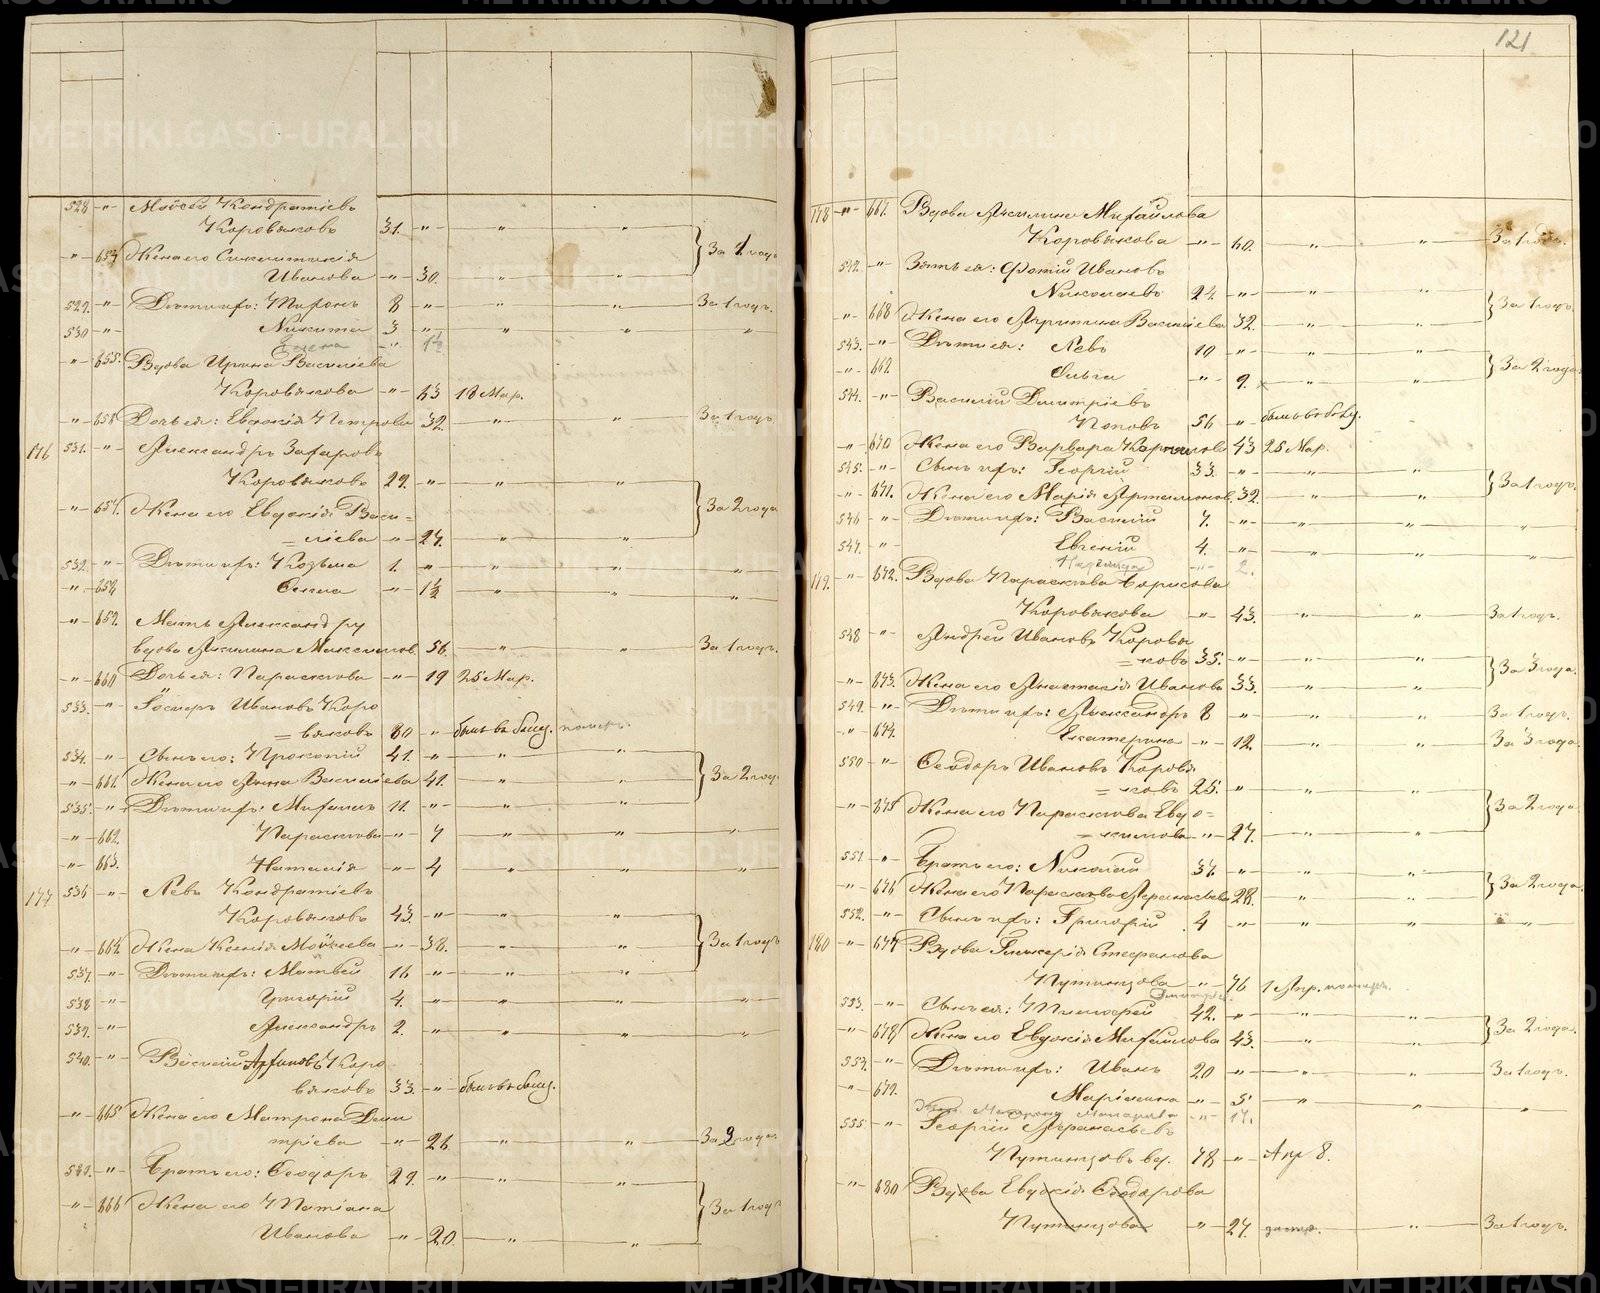 528 -"- Моѷсей Кондратіевъ
Коровяковъ 31. -"- " "
-"- 654 Жена его Синклитикія
Иванова -"- 30. " " } За 1 годъ
529. -"- Дѣти ихъ: Тихонъ 8 -"- " " За 1 годъ.
530 -"- Никита 3 -"- " " "
Елена -"- 1½
-"- 655. Вдова Ирина Васильева
Коровякова -"- 63 18 Мар.
-"- 656 Дочь ея: Евдокія Петрова 32. " " За 1 годъ
176 531. -"- Александръ Захаровъ
Коровяковъ 29. -"- " "
-"- 657. Жена его Евдокія Васи= } За 2 года
=лieва -"- 27. " "
532. -"- Дѣти ихъ: Козьма 1. -"- " " "
-"- 658 -"- 1½ " " "
-"- 659. Мать Александру
вдова Акилина Максимов. 56. " " За 1 годъ.
-"- 660 Дочь ея: Параскева -"- 19 25 Мар.
533. -" Иванов Коро
=вяковъ 80 -"-
534. -"- Сынъ его: Прокопій 41. -"- " "
-"- 661. Жена его Анна Васильева 41. " " } За 2 года
535. -"- Дѣти ихъ: Михаилъ 11. -"- " "
-"- 662. Параскева -"- 7 " " "
-"- 663. Наталія -"- 4 " " "
177 536 -"- Левъ Кондратіевъ
Коровяковъ 43. -"- " "
-"- 664. Жена Ксенія Моѷсеева -"- 38. " " } За 1 годъ
537. -"- Дѣти ихъ: Матвей 16 -"- " "
538 -"- Григорій 4. -"- " " "
539. -"- Александръ 2. -"- " " "
540. -"- Василій Коро
вяковъ 33. -"-
-"- 665 Жена его Матрона Дми
тріева -"- 26. " " За 3 года
541. -"- Братъ его: Ѳеодоръ 29. -"- " "
-"- 666 Жена его Татіана } За 1 годъ
Иванова -"- 20. " "
121
178 -"- 667. Вдова Акилина Михайлова
Коровякова -"- 60. " " За 1 годъ.
542. -"- Зять ея: Фотій Ивановъ
Николаевъ 24. -"- " " } За 1 годъ.
-"- 668 Жена его Васильева 32. " "
543. -"- Дѣти ея: Левъ 10 -"- " " } За 2 года
-"- 669. Ольга -"- 9. " "
544. -"- Василій Дмитріевъ
Поповъ 56 -"-
-"- 670 Жена его Варвара 43 25 Мар.
545. -"- Сынъ ихъ: Георгій 33. -"- " } За 1 годъ.
-"- 671. Жена его Марія 32. " "
546 -"- Дѣти ихъ: Василій 7. -"- " " "
547. -"- Евгеній 4. -"- " " "
-"- 2.
179. -"- 672. Вдова Параскева Борисова
Коровякова -"- 43. " " За 1 годъ.
548 -"- Андрей Ивановъ Коровя
=ковъ 35. -"- " " } За 3 года.
-"- 673. Жена его Анастасія Иванова 33. " "
549. -"- Дѣти ихъ: Александръ 8 " " " За 1 годъ.
-"- 674. Екатерина -"- 12. " " За 3 года.
550 -"- Ѳеодоръ Ивановъ Коровя
=ковъ 25. " " "
-"- 675 Жена его Параскева Евдо= } За 2 года
=кимова -"- 27. " "
551. " Братъ его: Николай 37. -"- " "
-"- 676 Жена его Параскева Аѳанасьева 28. " " } За 2 года.
552. -"- Сынъ ихъ: Григорій 4 -"- " " "
180 -"- 677 Вдова Гликерія Стефанова
Путинцова -"- 76 1 Апр.
553. -"- Сынъ ея: Тимоѳей 42. -"- " "
-"- 678 Жена его Евдокія Михайлова 43. " " } За 2 года.
554. -"- Дѣти ихъ: Иванъ 20 -"- " " За 1 годъ.
-"- 679. Маріанна -"- 5 " " "
Жена Матрона Макарова -"- 17.
555. -"- Георгій Аѳанасьевъ
Путинцовъ вд. 78 -"- Апр 8.
-"- 680 Вдова Евдокія Ѳеодорова
Путинцова -"- 27. " За 1 годъ.
METRIKI.GASO-URAL.RU